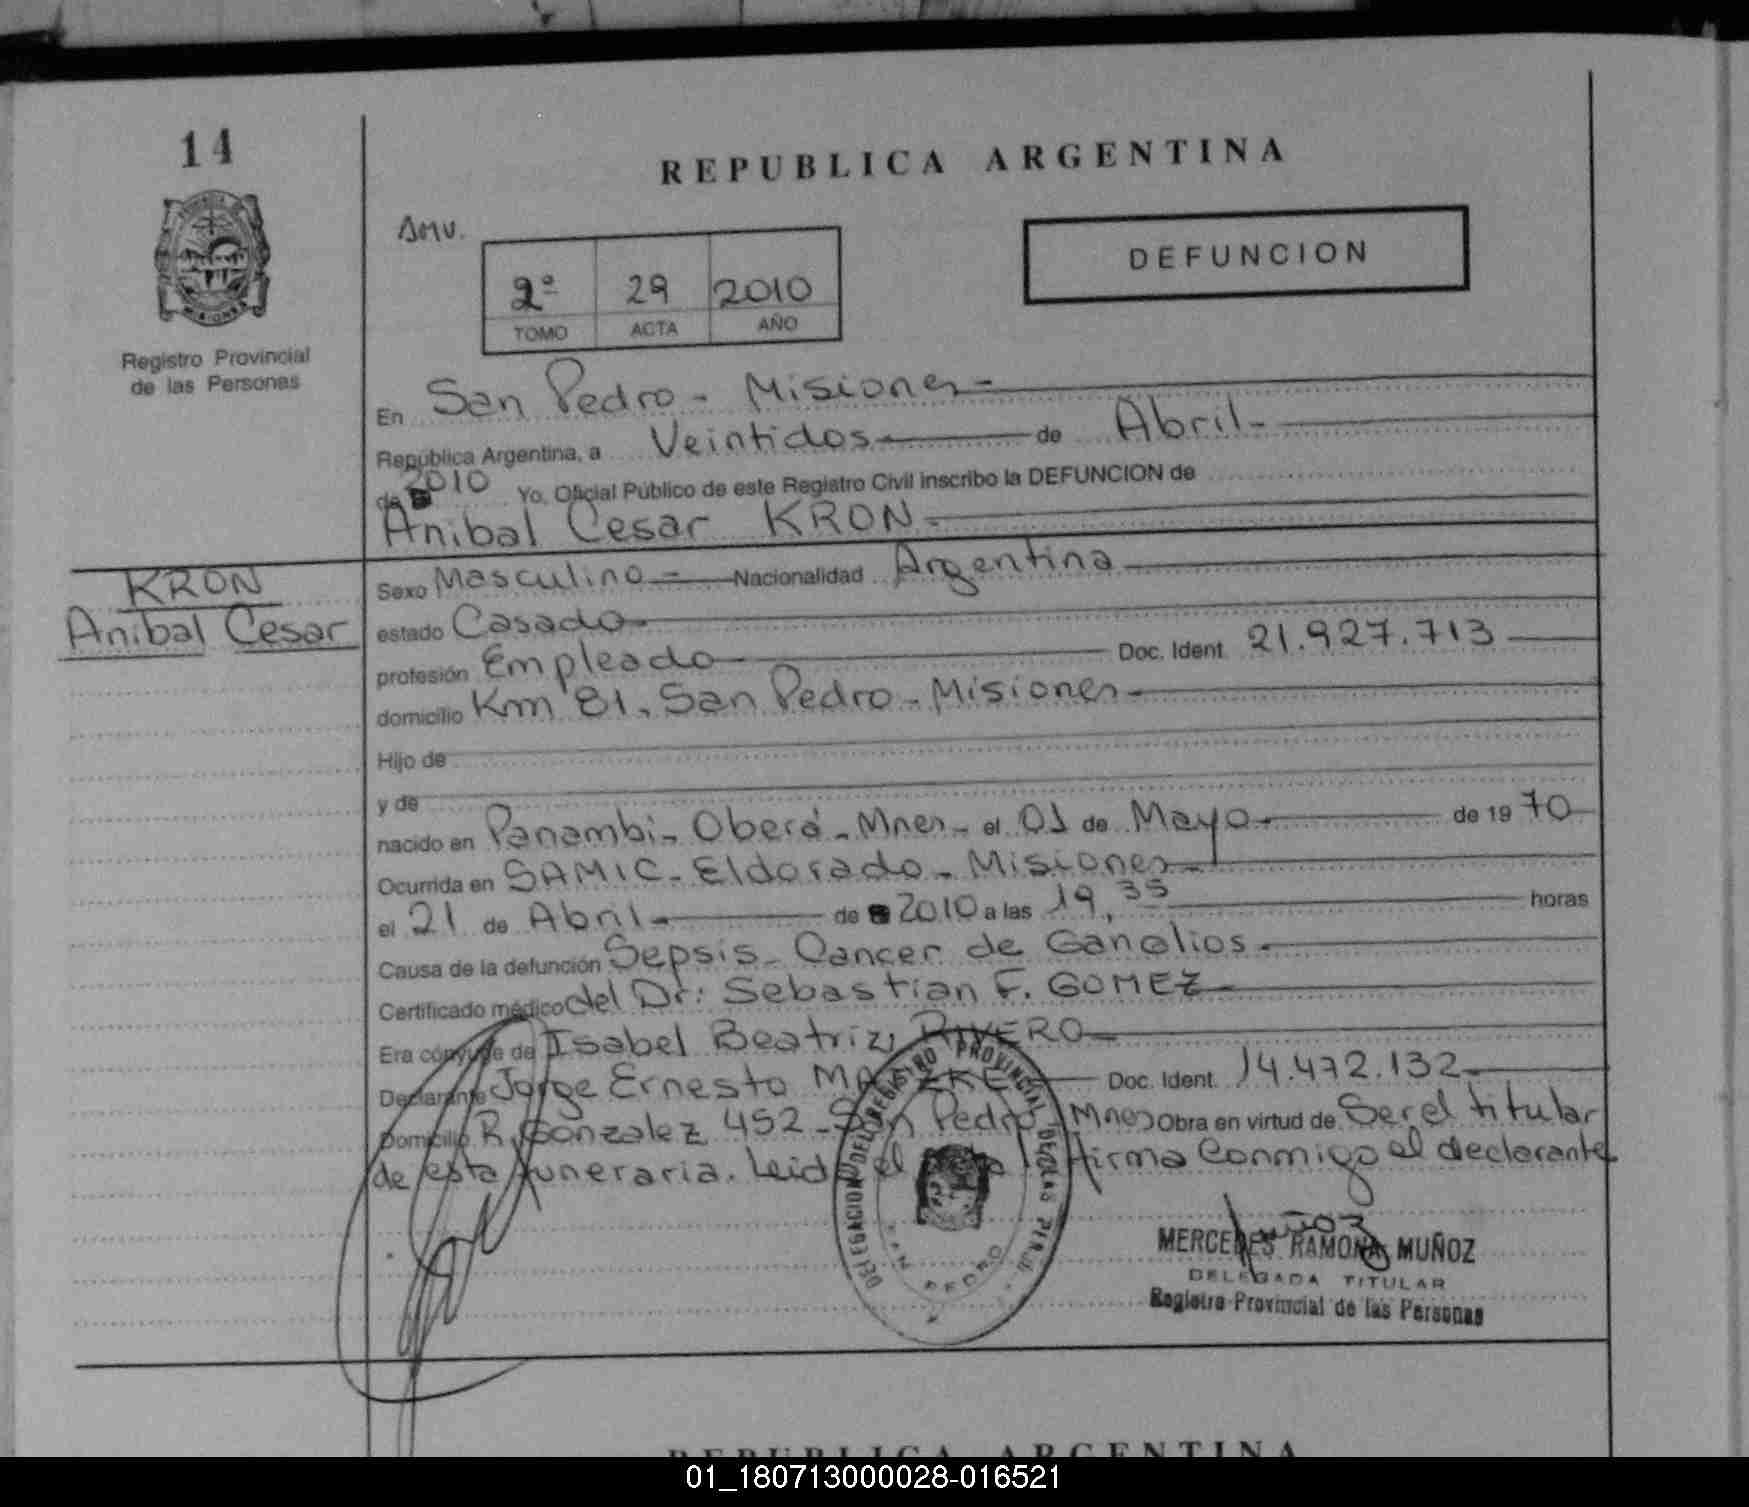 14
REPUBLICA ARGENTINA
MISIONES
Registro Provincial
de las Personas
AMV.
2º 29 2010
TOMO ACTA AÑO
DEFUNCION
En San Pedro - Misiones -
República Argentina, a Veintidos de Abril -
de 2010 Yo, Oficial Público de este Registro Civil inscribo la DEFUNCION de
Anibal Cesar KRON -
KRON
Anibal Cesar
Sexo Masculino - Nacionalidad Argentina
estado Casado -
profesión Empleado Doc. Ident. 21.927.713
domicilio Km 81, San Pedro - Misiones -
Hijo de
y de
nacido en Panambi - Oberá - Mnes - el 01 de Mayo - de 1970
Ocurrida en SAMIC - Eldorado - Misiones -
el 21 de Abril - de 2010 a las 19,35 horas
Causa de la defunción Sepsis - Cancer de Ganglios -
Certificado médico del Dr: Sebastian F. GOMEZ -
Era cónyuge de Isabel Beatriz RIVERO -
Declarante Jorge Ernesto Doc. Ident. 14.472.132 -
Domicilio R. Gonzalez 452 - San Pedro - Mnes Obra en virtud de Ser el titular
de esta funeraria. Leida el firma conmigo el declarante
DELEGACION DEL REGISTRO PROVINCIAL DE LAS PERS.
SAN PEDRO
Muñoz
MERCEDES RAMONA MUÑOZ
DELEGADA TITULAR
Registro Provincial de las Personas
REPUBLICA ARGENTINA
01_180713000028-016521